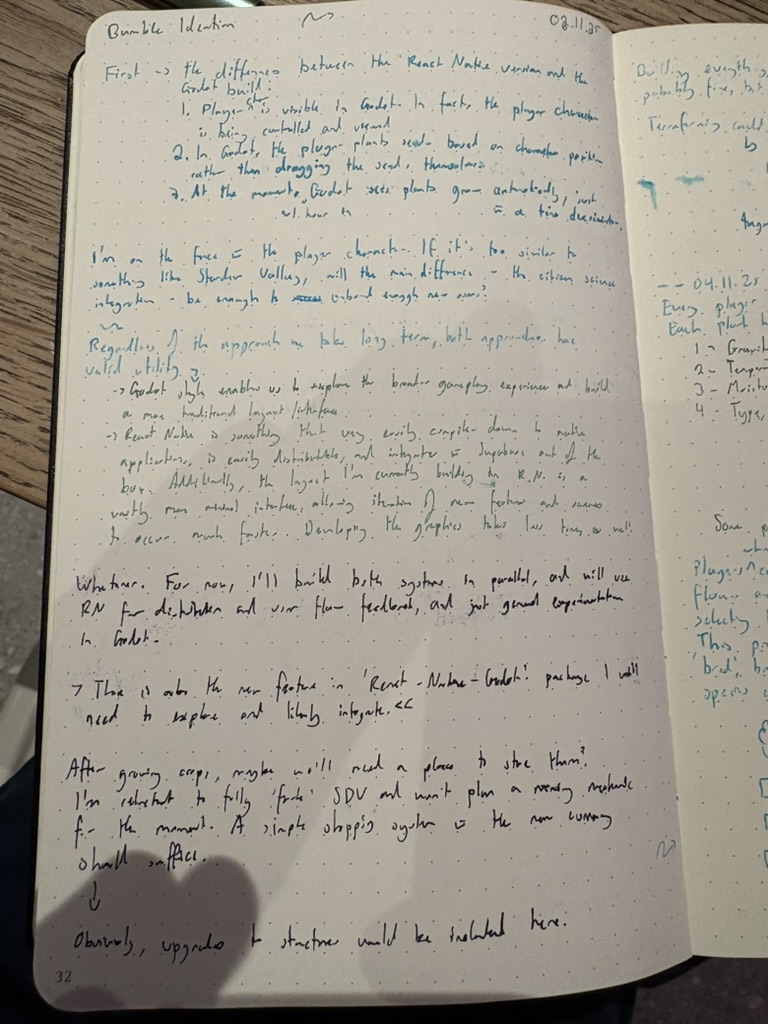 Bumble Ideation
02.11.25
First → the differences between the React Native version and the
Godot build:
1. Player is visible in Godot. In fact, the player character
is being controlled and viewed
2. In Godot, the player plants seeds based on character position
rather than dragging the seeds themselves
3. At the moment, Godot seeds plants grow automatically, just
~1 hour a time
I'm on the fence the player character. If it's too similar to
something like Stardew Valley, will the main difference - the citizen science
integration - be enough to onboard enough new users?
Regardless of the approach we take long term, both approaches have
valid utility.
→ Godot style enables us to explore the broader gameplay experience and build
a more traditional layout/interface
→ React Native is something that very easily compiles down to native
applications, is easily distributable, and integrates Supabase out of the
box. Additionally, the layout I'm currently building in R.N. is a
vastly more minimal interface, allowing iteration of new features and
to occur much faster. Developing the graphics takes less time, as well.
Whatever. For now, I'll build both systems in parallel, and will use
RN for distribution and user flow feedback, and just general experimentation
in Godot.
> There is also the new feature in 'React-Native-Godot' package I will
need to explore and likely integrate. <<
After growing crops, maybe we'll need a place to store them?
I'm reluctant to fully 'fork' SDV and won't plan a mechanic
for the moment. A simple shopping system the new currency
should suffice.
↓
Obviously, upgrades to structures would be included here.
32
Building everything
probably fine, but
Terraforming could
-- 04.11.25
Every player
Each plant h
1 - Gravit
2 - Temp
3 - Moistu
4 - Type,
Some p
Players
flower a
selecting
This pr
'bred', b
species